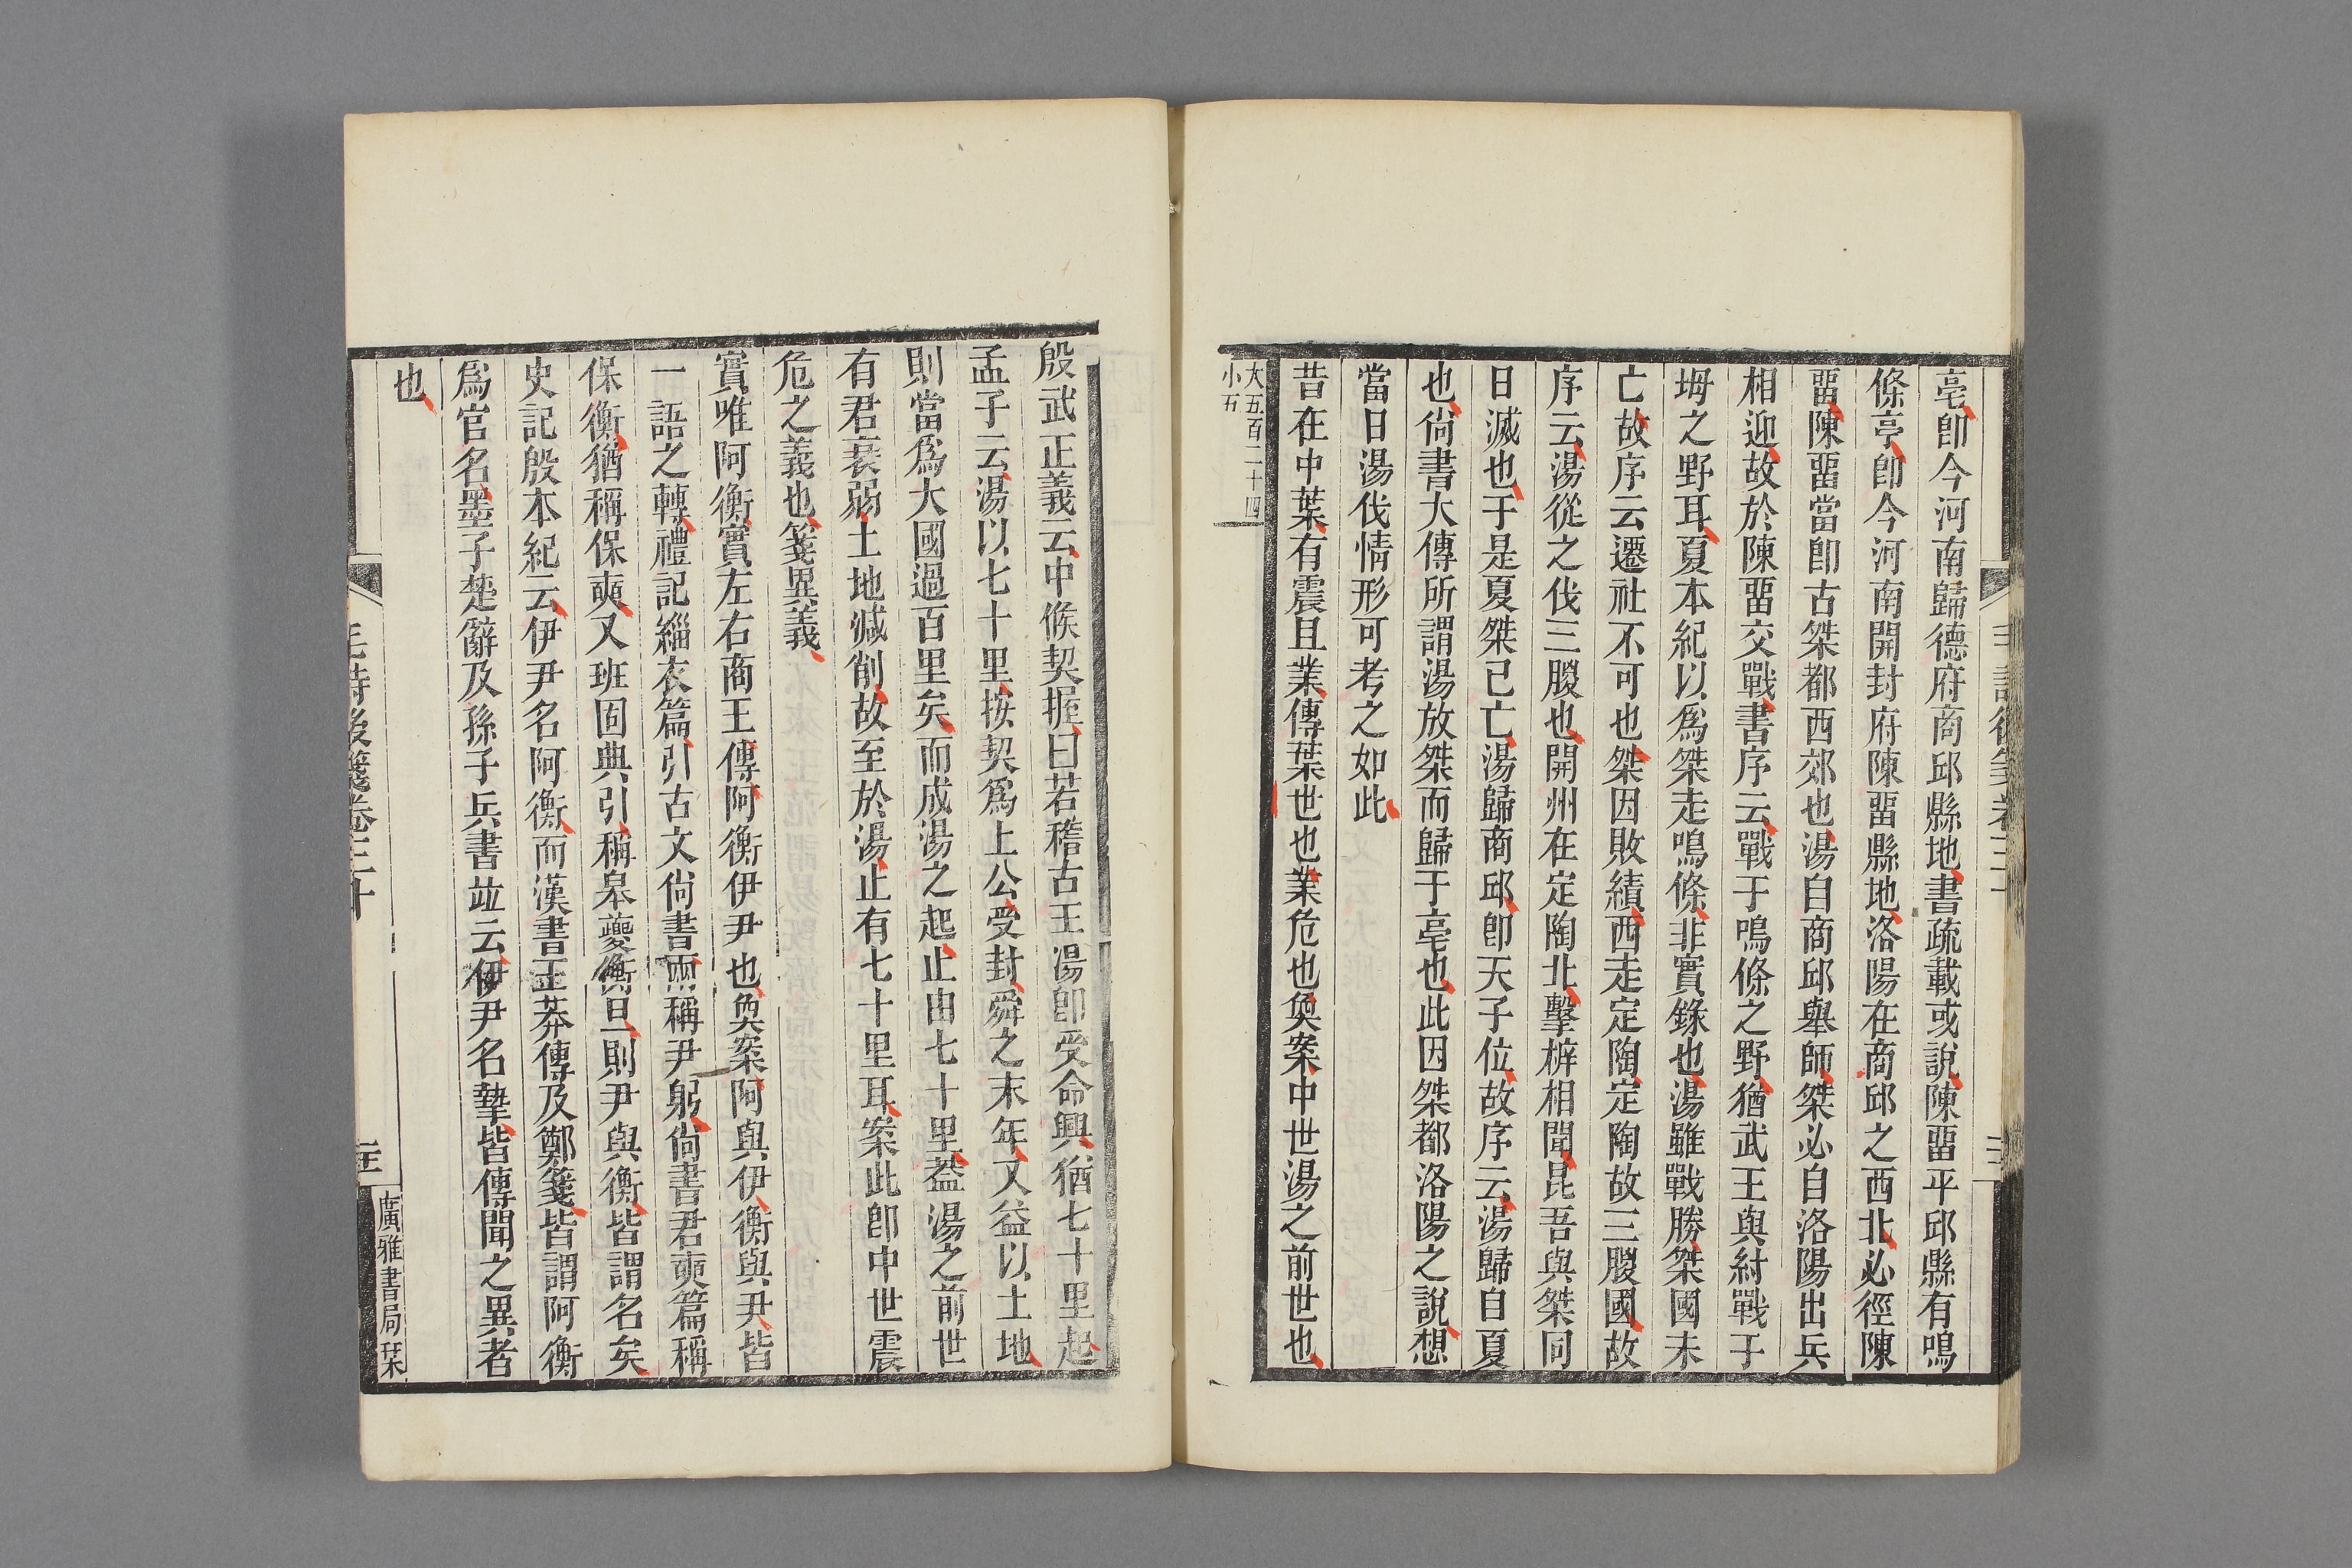 亳卽今河南歸德府商邱縣地書疏載或說陳畱平邱縣有鳴
條亭卽今河南開封府陳畱縣地洛陽在商邱之西北必徑陳
畱陳畱當卽古桀都西郊也湯自商邱舉師桀必自洛陽出兵
相迎故於陳畱交戰書序云戰于鳴條之野猶武王與紂戰于
坶之野耳夏本紀以爲桀走鳴條非實錄也湯雖戰勝桀國未
亡故序云遷社不可也桀因敗績西走定陶定陶故三朡國故
序云湯從之伐三朡也開州在定陶北擊柝相聞昆吾與桀同
日滅也于是夏桀已亡湯歸商邱卽天子位故序云湯歸自夏
也尙書大傳所謂湯放桀而歸于亳也此因桀都洛陽之說想
當日湯伐情形可考之如此
昔在中葉有震且業傳葉世也業危也奐案中世湯之前世也
大五百二十四
小五
殷武正義云中候契握曰若稽古王湯卽受命興猶七十里起
孟子云湯以七十里按契爲上公受封舜之末年又益以土地
則當爲大國過百里矣而成湯之起止由七十里葢湯之前世
有君衰弱土地減削故至於湯止有七十里耳案此卽中世震
危之義也箋異義
實唯阿衡實左右商王傳阿衡伊尹也奐案阿與伊衡與尹皆
一語之轉禮記緇衣篇引古文尙書兩稱尹躬尙書君奭篇稱
保衡猶稱保奭又班固典引稱皋夔衡旦則尹與衡皆謂名矣
史記殷本紀云伊尹名阿衡而漢書王莽傳及鄭箋皆謂阿衡
爲官名墨子楚辭及孫子兵書竝云伊尹名摯皆傳聞之異者
也
毛詩後箋卷三十
廣雅書局栞